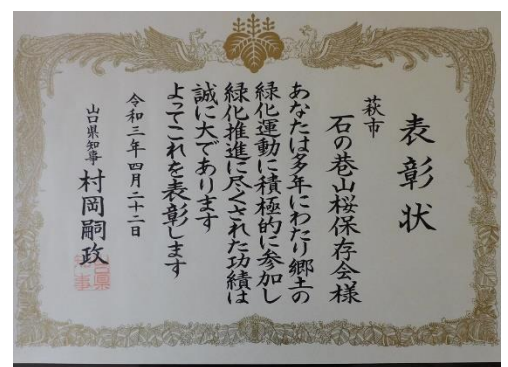 表彰状
萩市
石の巷山桜保存会様
あなたは多年にわたり郷土の
緑化運動に積極的に参加し
緑化推進に尽くされた功績は
誠に大であります
よってこれを表彰します
令和三年四月二十二日
山口県知事 村岡嗣政